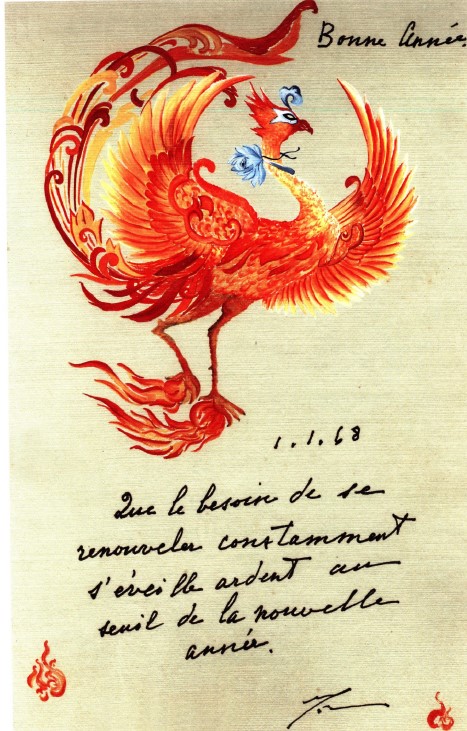 Bonne Année.
1.1.68
Que le besoin de se
renouveler constamment
s'éveille ardent au
seuil de la nouvelle
année.